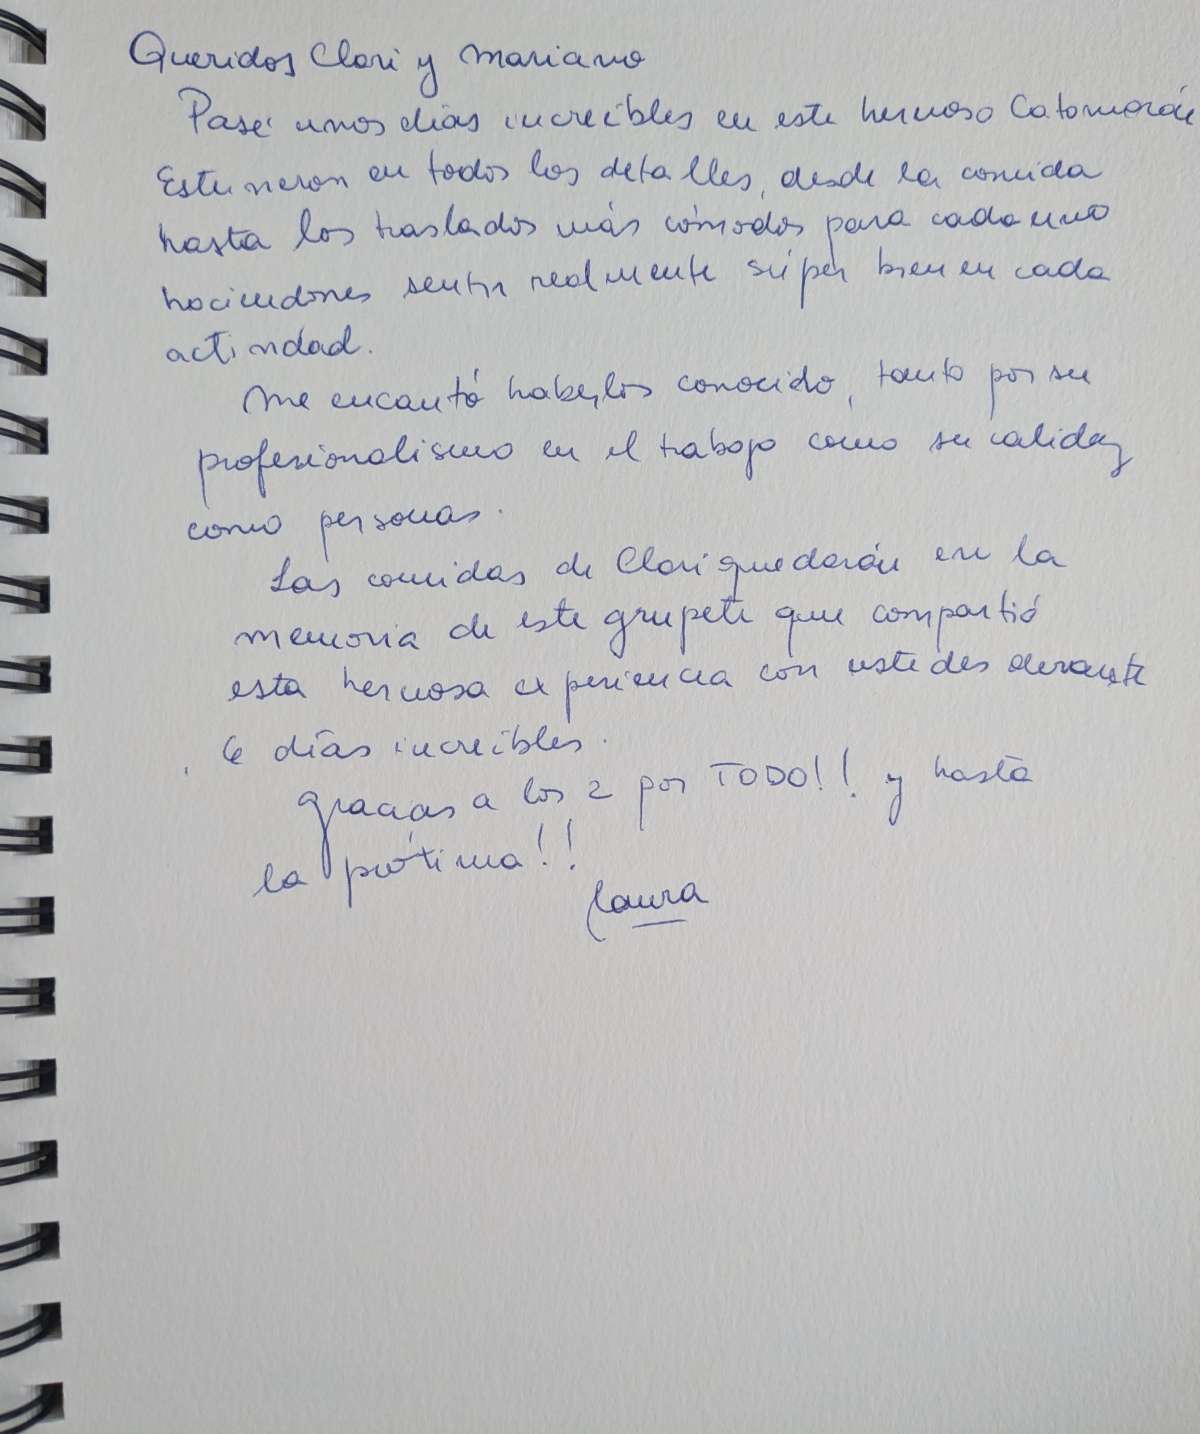 Queridos Clari y Mariano
Pasé unos días increíbles en este hermoso Catamarán
Estuvieron en todos los detalles, desde la comida
hasta los traslados más cómodos para cada uno
haciendones sentir realmente súper bien en cada
actividad.
Me encantó haberlos conocido, tanto por su
profesionalismo en el trabajo como su calidez
como personas.
Las comidas de Clari quedarán en la
memoria de este grupete que compartió
esta hermosa experiencia con ustedes durante
6 días increíbles.
Gracias a los 2 por TODO!! y hasta
la próxima!!
Laura